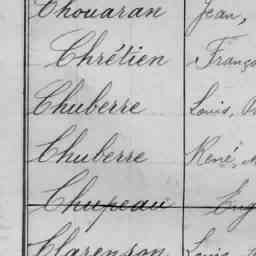 Chouaran Jean,
Chrétien Franço
Chuberre Louis,
Chuberre René,
Chupeau Eug
Clarenson Louis